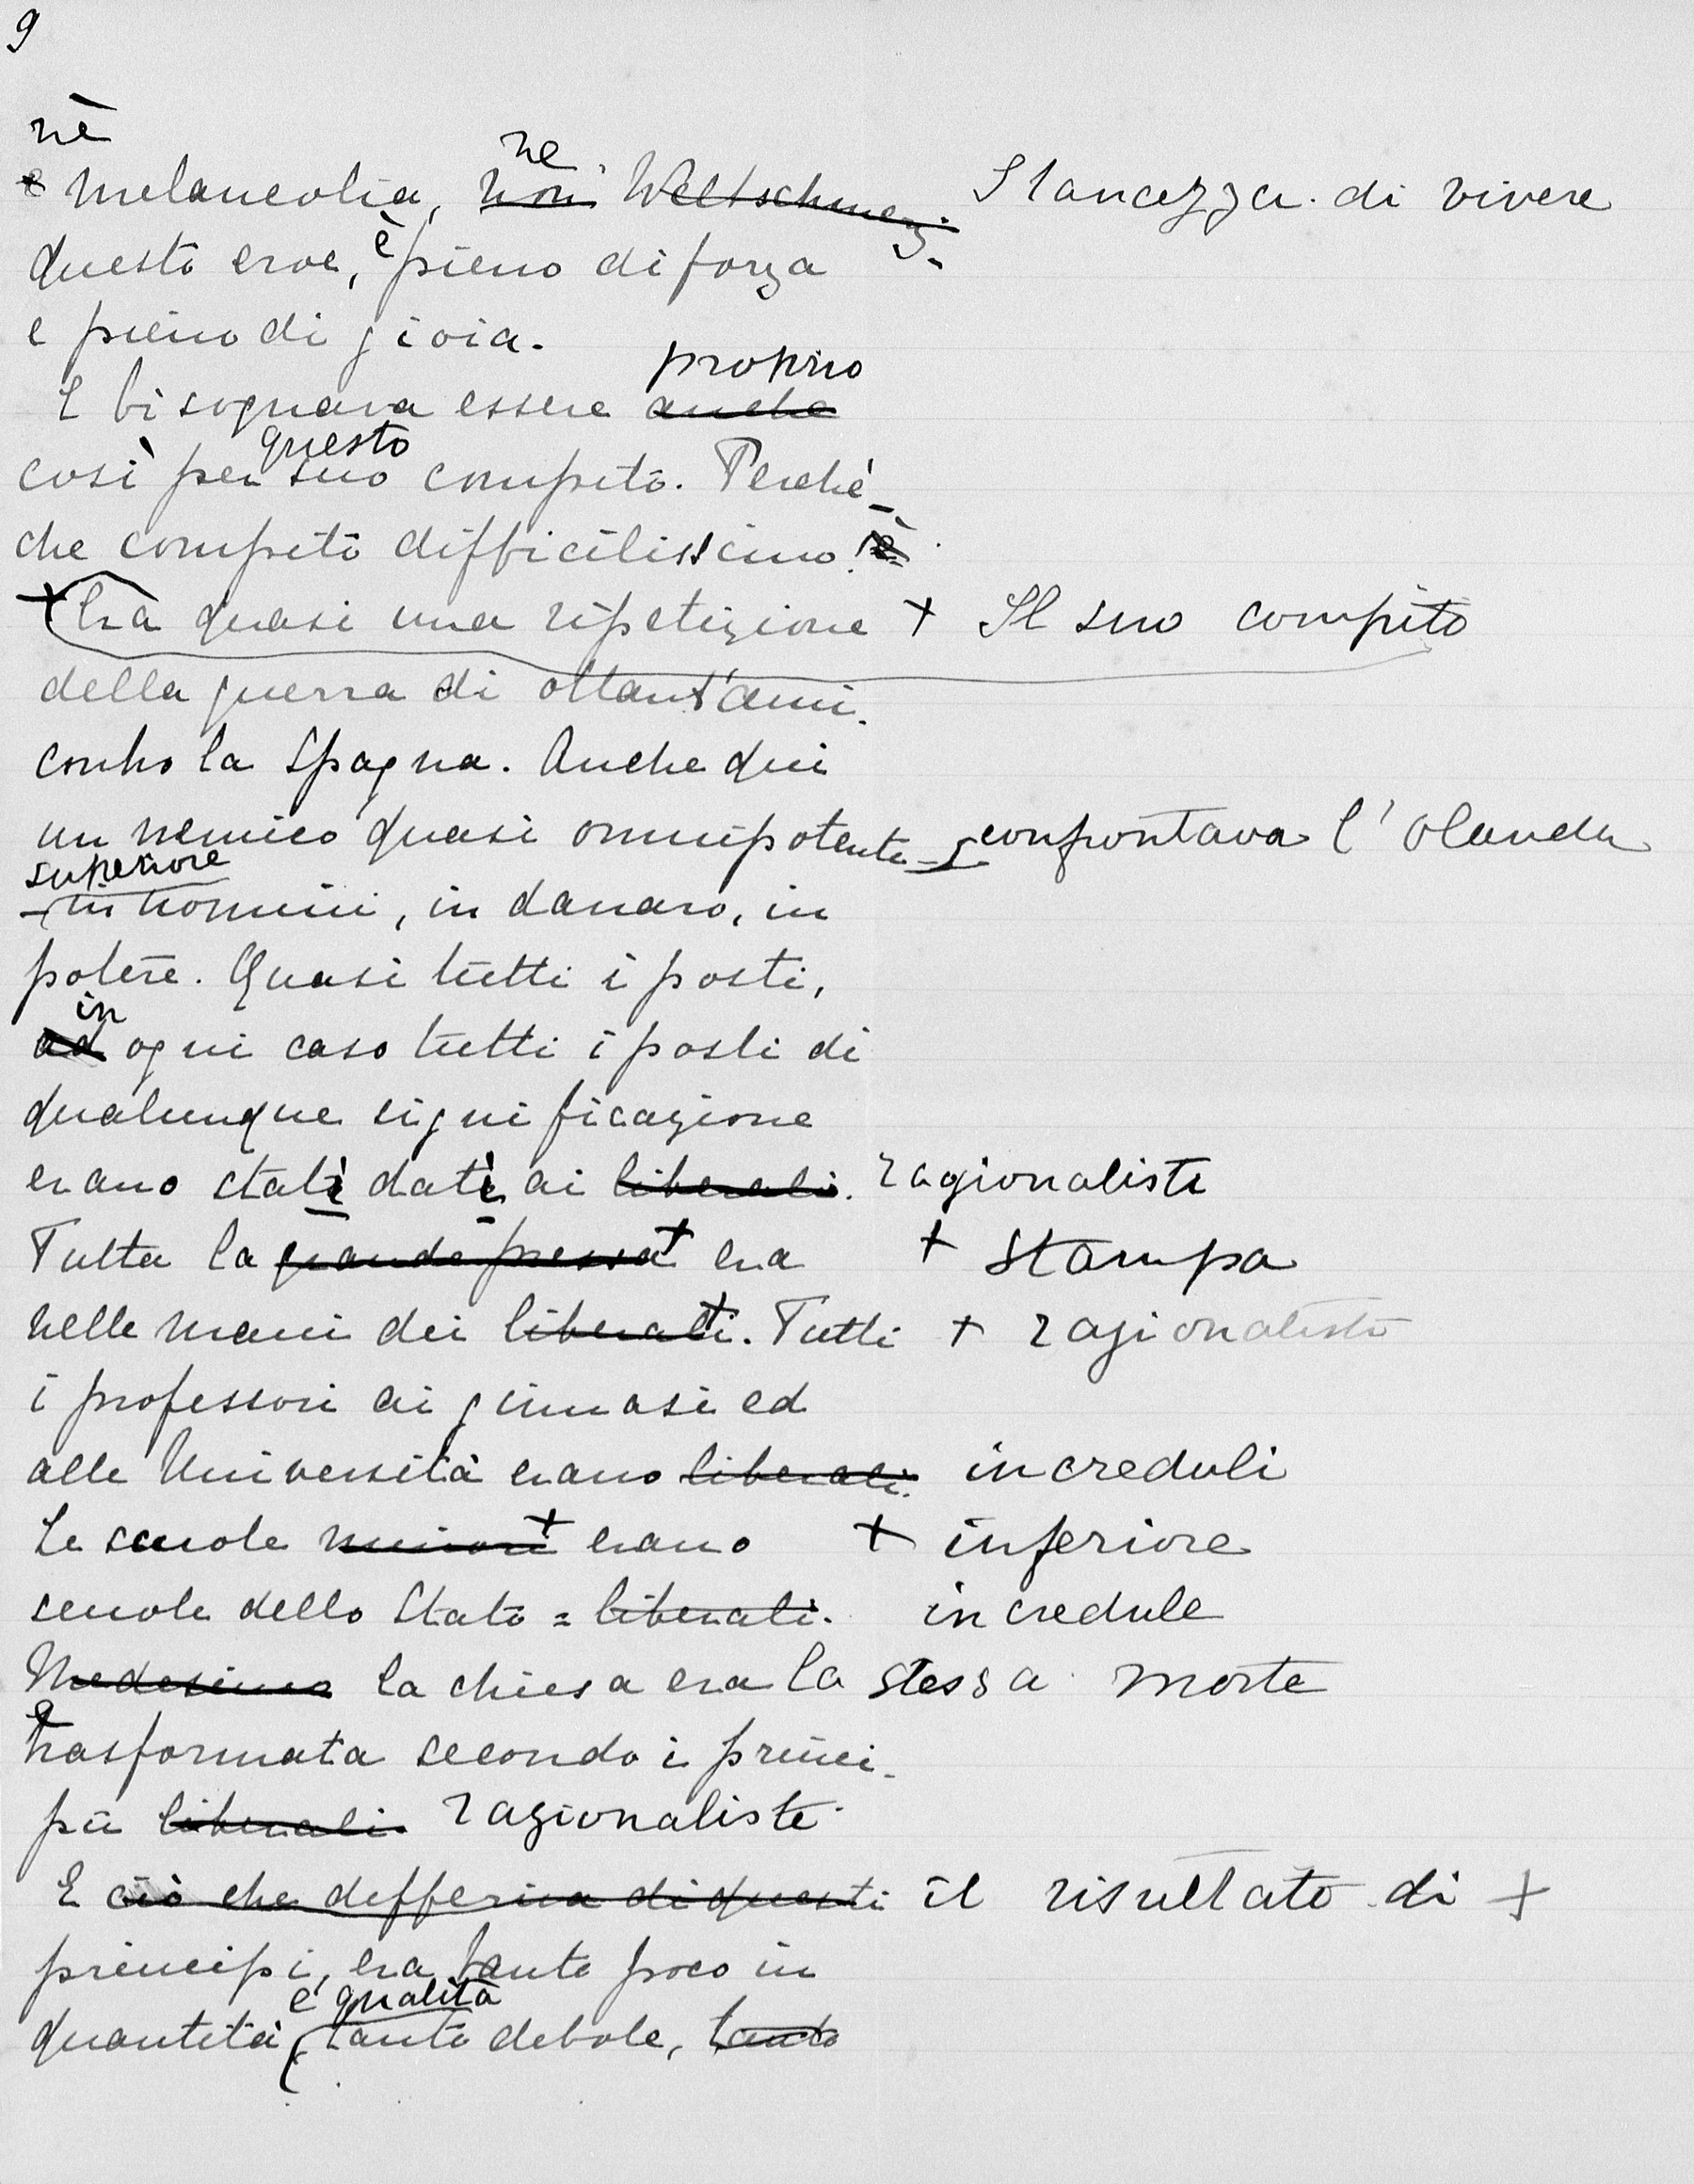 9
nè
e melancolia, non ne Weltschmerz. Stancezza di vivere
questo eroe, è pieno di forza
e pieno di gioia.
proprio
E bisognava essere anche
questo
così per suo compito. Perchè
che compito difficilissimo! è
+ Era quasi una ripetizione + Il suo compito
della guerra di ottant'anni
contro la Spagna. Anche qui
un nemico quasi omnipotente confrontava l'Olanda
superiore
in uomini, in danaro, in
potere. Quasi tutti i posti,
in
ad ogni caso tutti i posti di
qualunque significazione
erano stati dati ai liberali. ragionalisti
Tutta la grande pressa + era + Stampa
nelle mani dei liberali +. Tutti + ragionalisti
i professori ai gimnasi ed
alle Università erano liberali. increduli
Le scuole minori + erano + inferiore
scuole dello Stato = liberali. incredule
Medesima la chiesa era la stessa morte
e
trasformata secondo i princi-
pii liberali. ragionalisti
E ciò che defferiva di questi il risultato di +
principi, era tanto poco in
e qualità
quantità, tanto debole, tanto